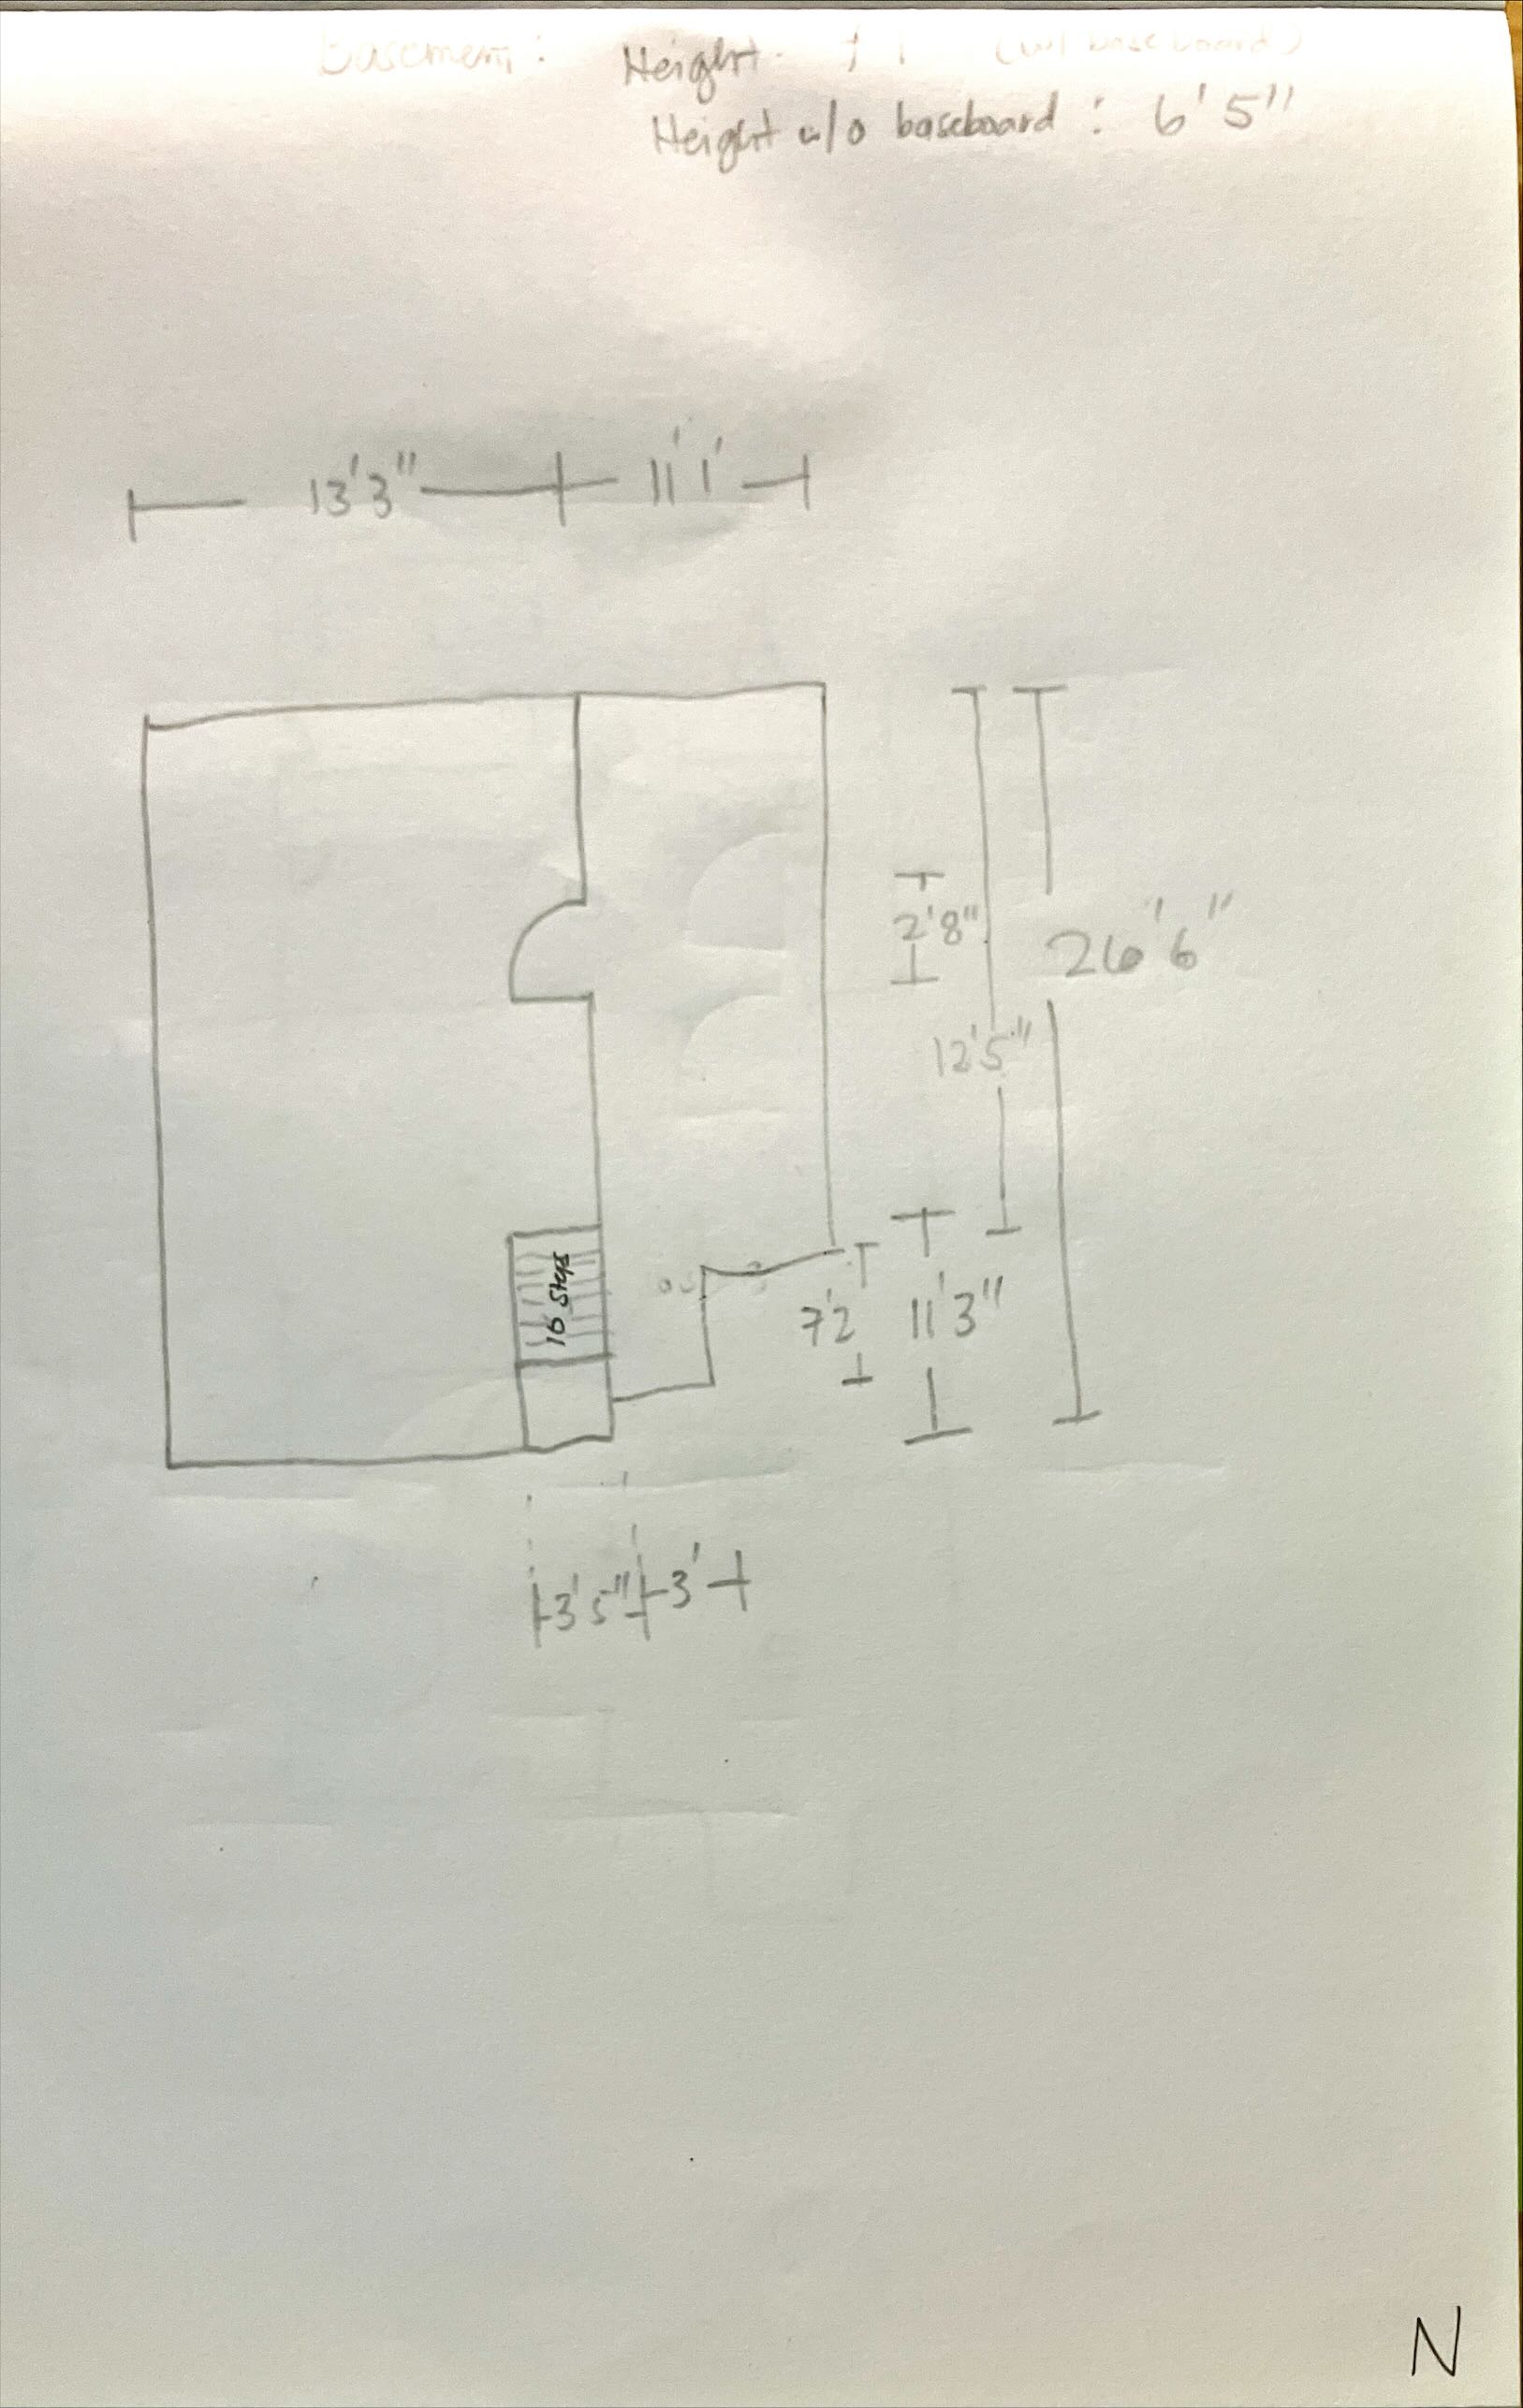 Basement: Height: 7' 1" (w/ baseboard)
Height w/o baseboard : 6'5"
13'3" 11'1'
2'8"
26'6"
12'5"
16 Steps
7'2 11'3"
3'5" 3'
N